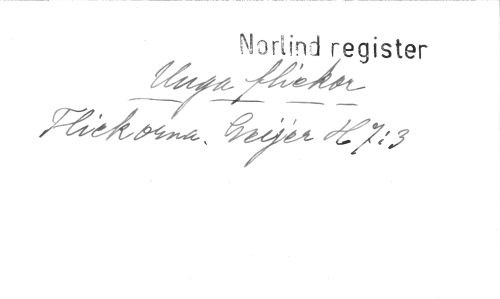 Norlind register
Unga flickor
Flickorna. Geijer H 7:3